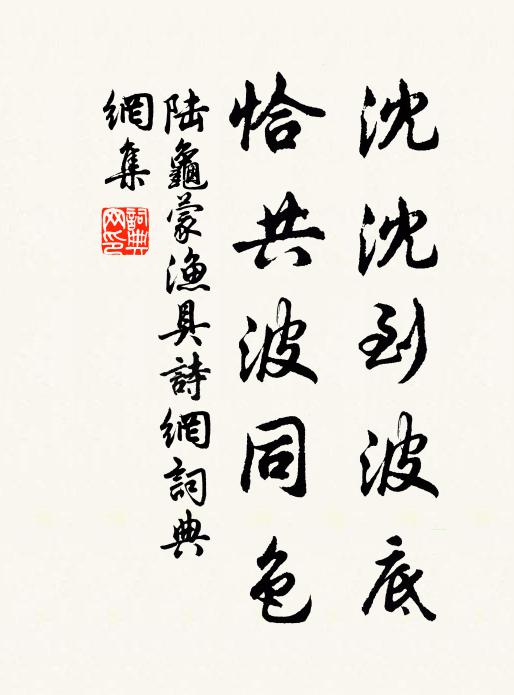 沈沈到波底
恰共波同色
陆龜蒙漁具詩網詞典
網集
詞典
网印